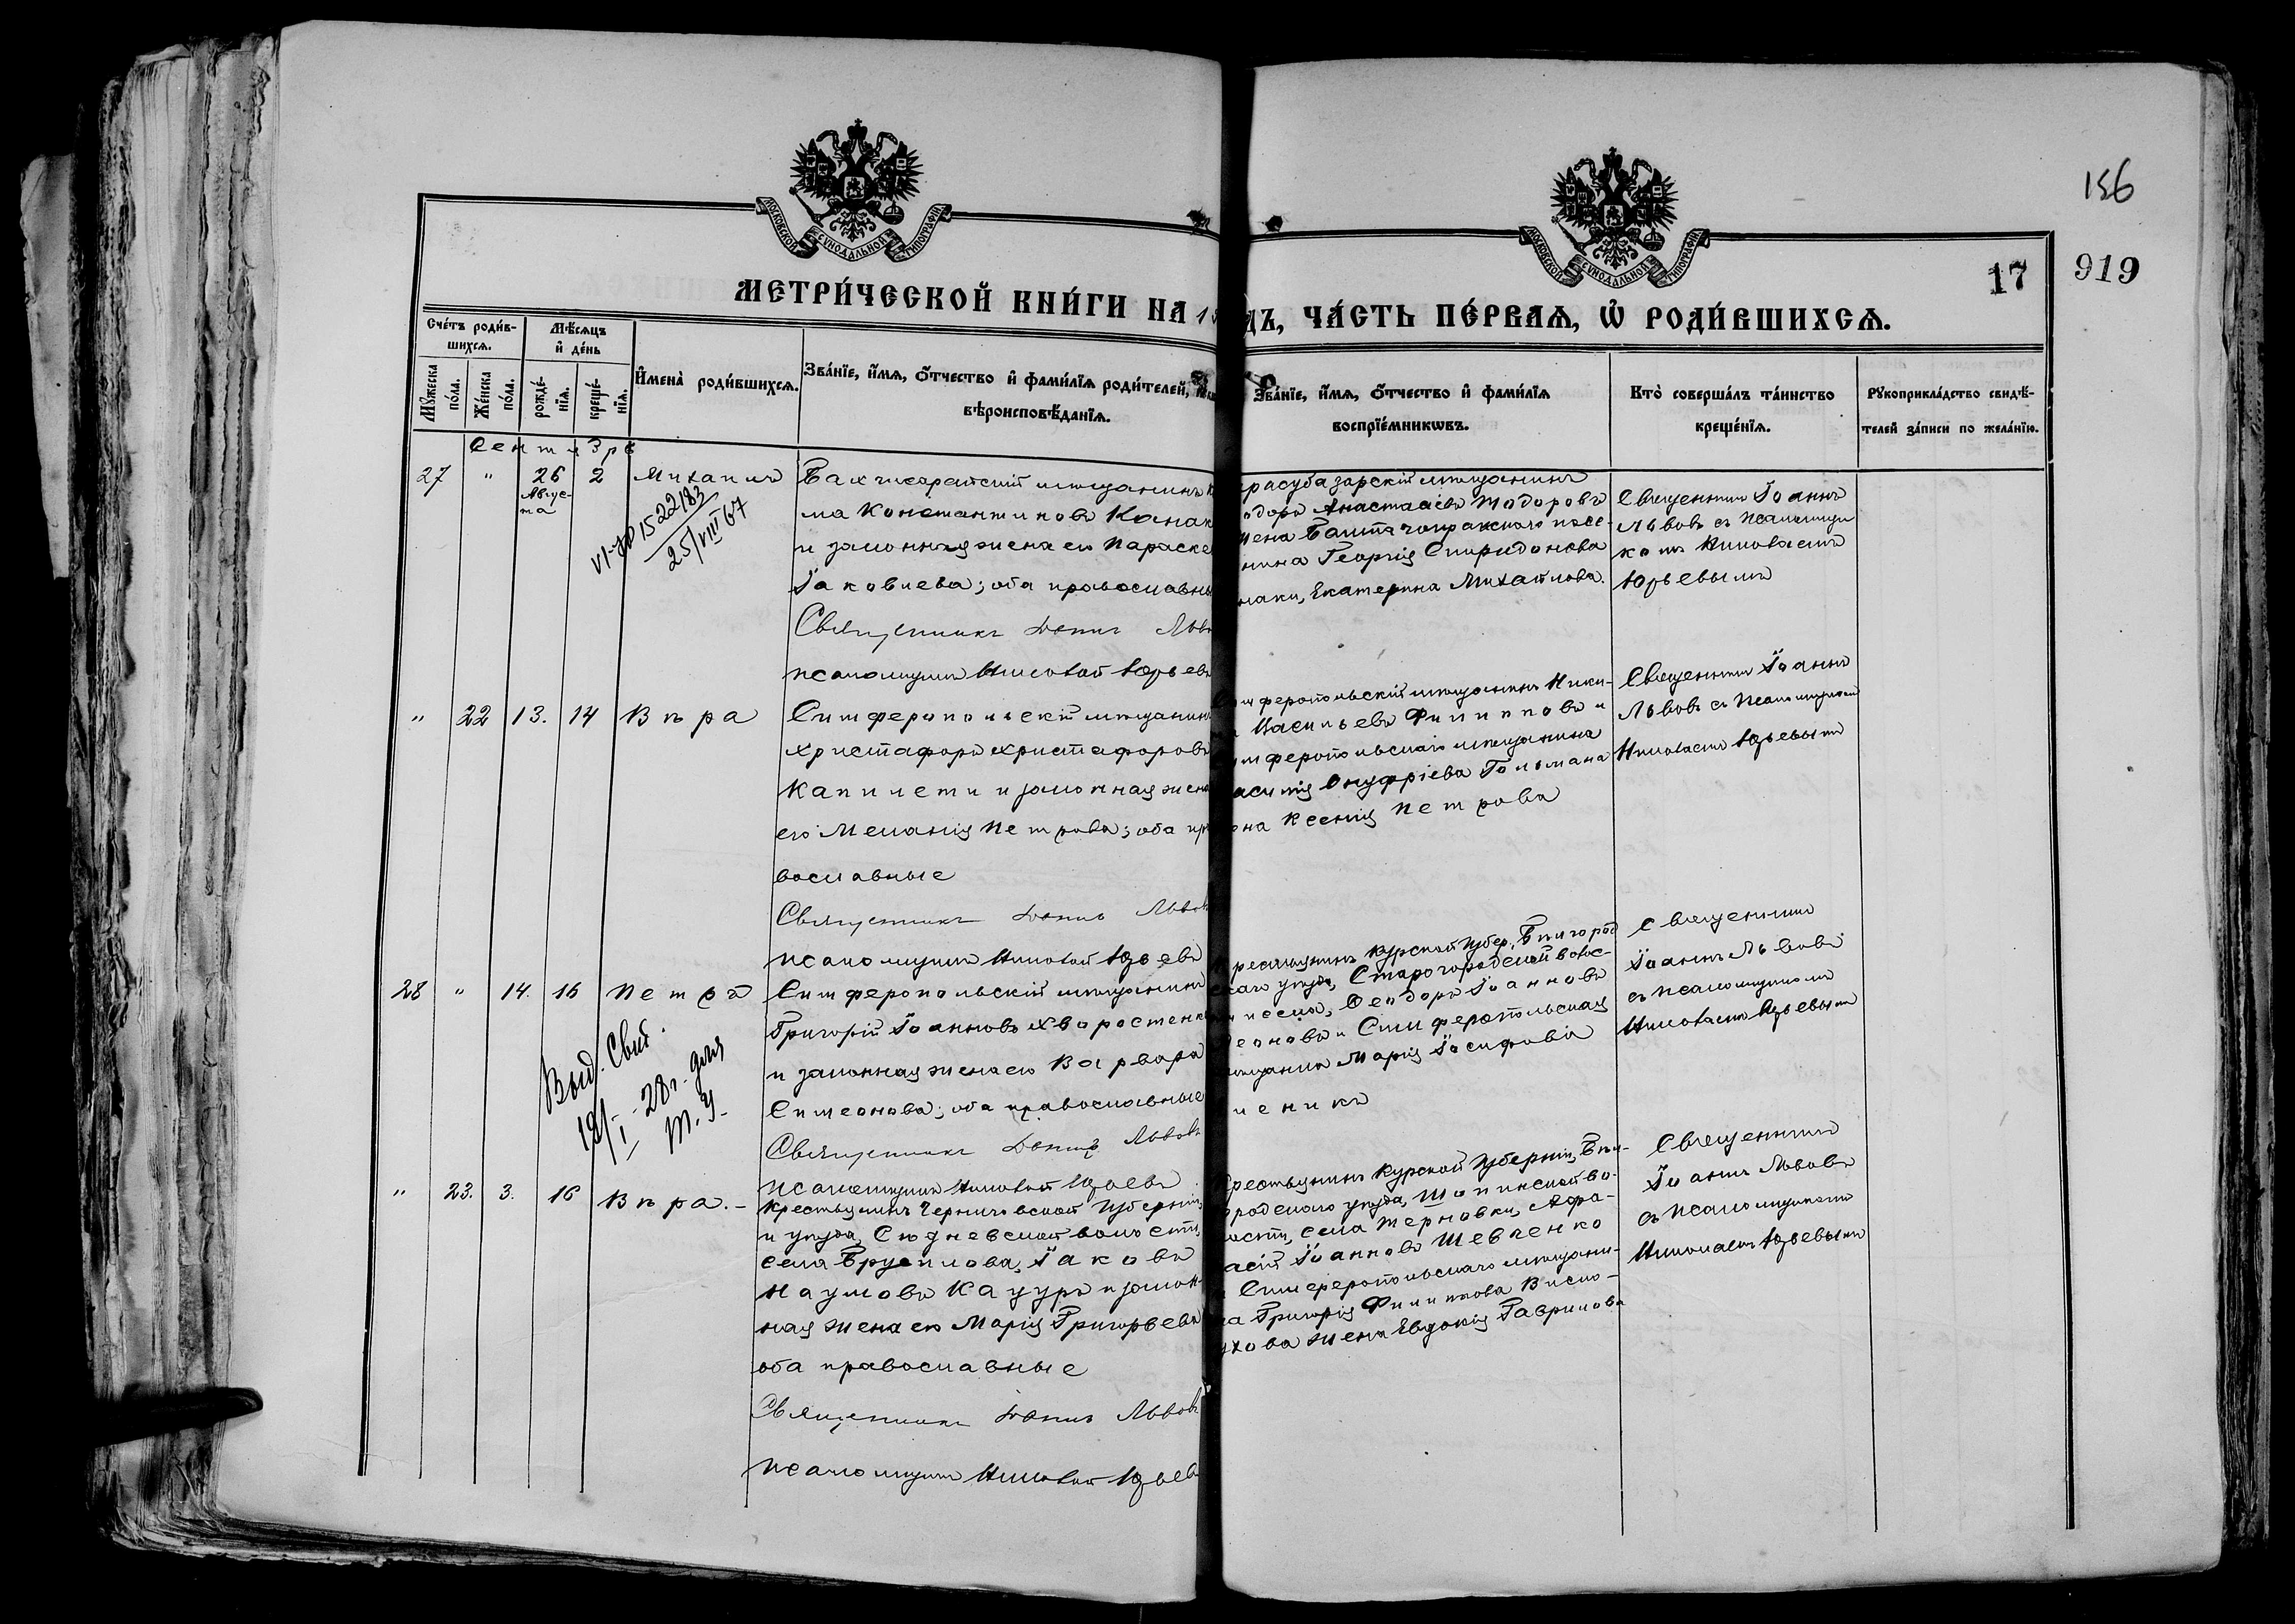 156
МОСКОВСКОЙ СУНОДАЛЬНОЙ ТИПОГРАФІИ
МОСКОВСКОЙ СУНОДАЛЬНОЙ ТИПОГРАФІИ
17
919
МЕТРИ́ЧЕСКОЙ КНИ́ГИ НА 1
ДЪ, ЧА́СТЬ ПЕ́РВАѦ, Ѡ҆ РОДИ́ВШИХСѦ.
Сче́тъ роди́в-
шихсѧ.
Мꙋ́жеска по́ла.
Же́нска по́ла.
Мѣ́сѧцъ
и҆ де́нь
рожде́-
нїѧ.
креще́-
нїѧ.
И҆мена̀ роди́вшихсѧ.
Зва́нїе, и҆́мѧ, ѻ҆́тчество и҆ фами́лїѧ роди́телей,
вѣроисповѣ́данїѧ.
Зва́нїе, и҆́мѧ, ѻ҆́тчество и҆ фами́лїѧ
воспрїе́мникѡвъ.
Кто̀ соверша́лъ та́инство
креще́нїѧ.
Рꙋкоприкла́дство свидѣ́-
телей за́писи по жела́нїю.
Сентября
27 " 26 2 Михаилъ
Авгус-
та
VI-ЯР 1522183
25/VIII 67
Бахчисарайскій мѣщанинъ
ма Константиновъ Канак
и законная жена его Параске
Іаковлева; оба православны
Священникъ Іоаннъ Льво
псаломщикъ Николай Юрьевъ
расубазарскій мѣщанинъ
одоръ Анастасіевъ Тодоровъ
жена
нина Георгія Спиридонова
наки, Екатерина Михайлова.
Священникъ Іоаннъ
Львовъ съ псаломщи
комъ Николаемъ
Юрьевымъ
" 22 13. 14 Вѣра
Симферопольскій мѣщанинъ
Христафоръ Христафоровъ
Капилети и законная жена
его Меланія Петрова; оба пр
вославные
Священникъ Іоаннъ Львов
псаломщикъ Николай Юрьевъ
имферопольскій мѣщанинъ Ники-
Васильевъ Филипповъ и
имферопольскаго мѣщанина
асилія Онуфріева Гольмана
ена Ксенія Петрова
Священникъ Іоаннъ
Львовъ съ псаломщикомъ
Николаемъ Юрьевымъ
28 " 14. 16 Петръ
Выд. Свид.
19/I-28г. для
Т.У.
Симферопольскій мѣщанинъ
Григорій Іоанновъ Хворостенк
и законная жена его Варвара
Симеонова; оба православные
Священникъ Іоаннъ Львовъ
псаломщикъ Николай Юрьевъ
рестьянинъ Курской губер., Бѣлгород
скаго уѣзда, Старогородской волос-
и села, Ѳеодоръ Іоанновъ
еоновъ и Симферопольская
ѣщанка Марія Іосифова
леникъ
Священникъ
Іоаннъ Львовъ
съ псаломщикомъ
Николаемъ Юрьевымъ
" 23. 3. 16 Вѣра.-
Крестьянинъ Черниговской губерніи
и уѣзда, Сюдневской волости,
села Брусилова, Іаковъ
Наумовъ Кацуръ и закон-
ная жена его Марія Григорьева
оба православные
Священникъ Іоаннъ Львовъ
псаломщикъ Николай Юрьевъ
рестьянинъ Курской губерніи, Бѣл-
ородскаго уѣзда, Шопинской во-
лости, села Терновки, Афа-
асій Іоанновъ Шевченко
Симферопольскаго мѣщани-
на Григорія Филиппова Висло-
ухова жена Евдокія Гаврилова
Священникъ
Іоаннъ Львовъ
съ псаломщикомъ
Николаемъ Юрьевымъ